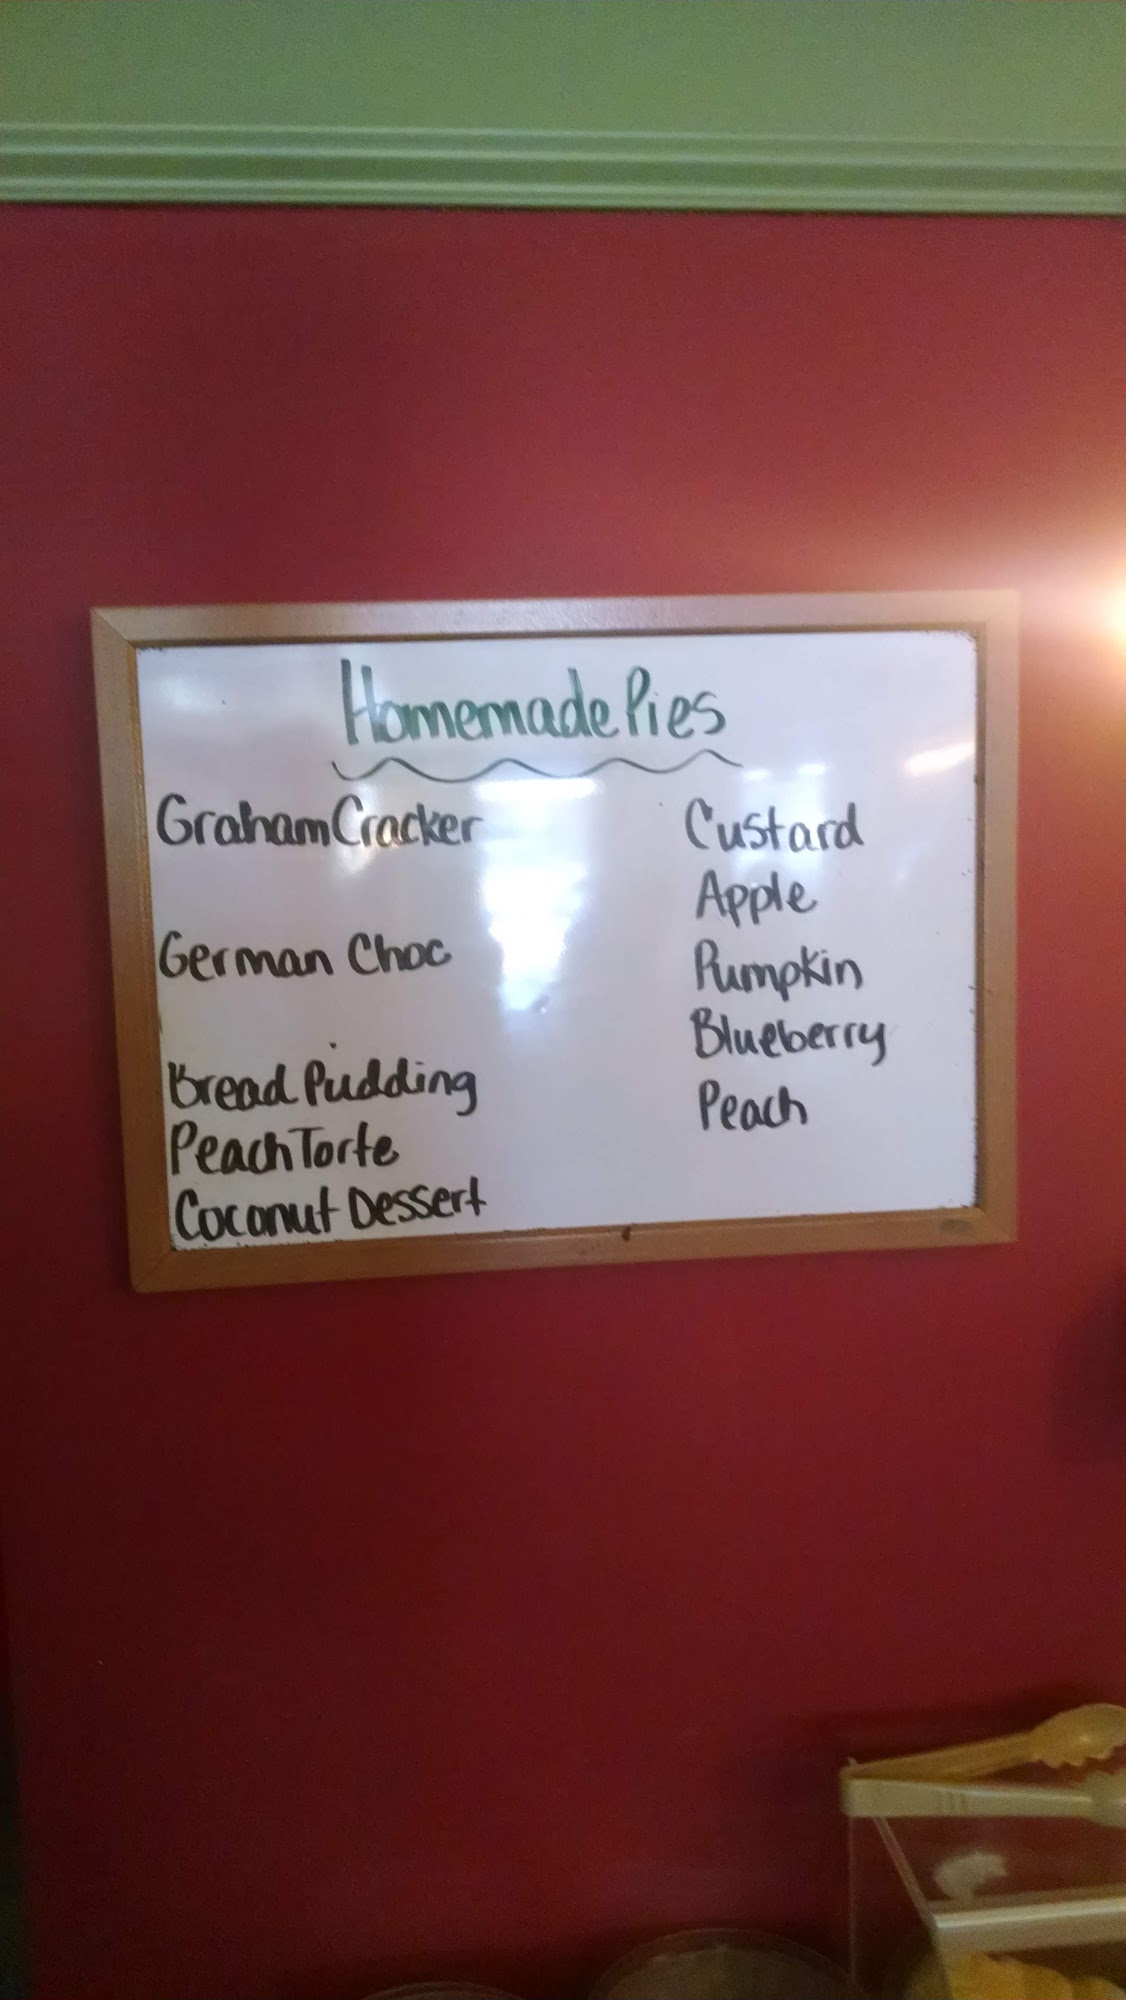 Homemade Pies
Graham Cracker
German Choc
Bread Pudding
Peach Torte
Coconut Dessert
Custard
Apple
Pumpkin
Blueberry
Peach